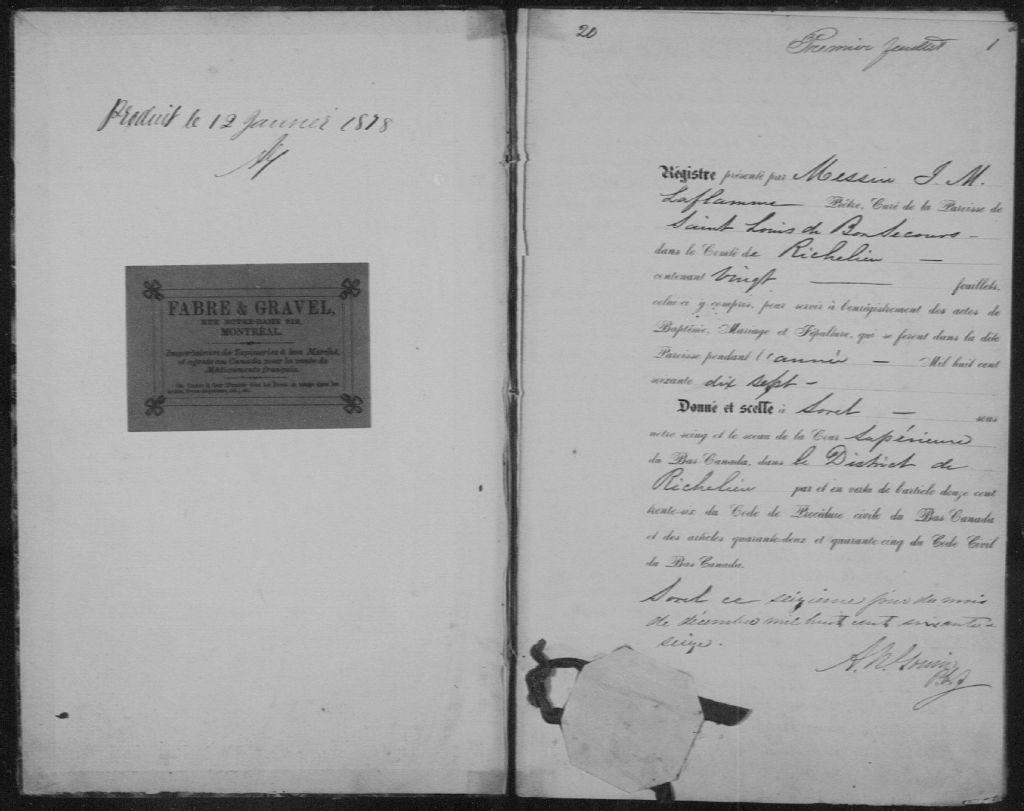 Produit le 12 Janvier 1878
FABRE & GRAVEL,
RUE NOTRE-DAME 219,
MONTRÉAL.
Importateurs de Tapisseries à bon Marché,
et agents au Canada pour la vente de
Médicaments français.
20
Premier feuillet 1
Régistre présenté par Messire J. M.
Laflamme Prêtre, Curé de la Paroisse de
Saint Louis de Bon Secours –
dans le Comté de Richelieu —
contenant Vingt — feuillets,
celui-ci y compris, pour servir à l'enrégistrement des actes de
Baptême, Mariage et Sépulture, qui se feront dans la dite
Paroisse pendant l'année – Mil huit cent
soixante dix sept –
Donné et scellé à Sorel — sous
notre seing et le sceau de la Cour Supérieure
du Bas Canada, dans le District de
Richelieu par et en vertu de l'article douze cent
trente-six du Code de Procédure civile du Bas Canada
et des articles quarante-deux et quarante-cinq du Code Civil
du Bas Canada.
Sorel ce seizieme jour du mois
de décembre mil huit cent soixante &
seize.